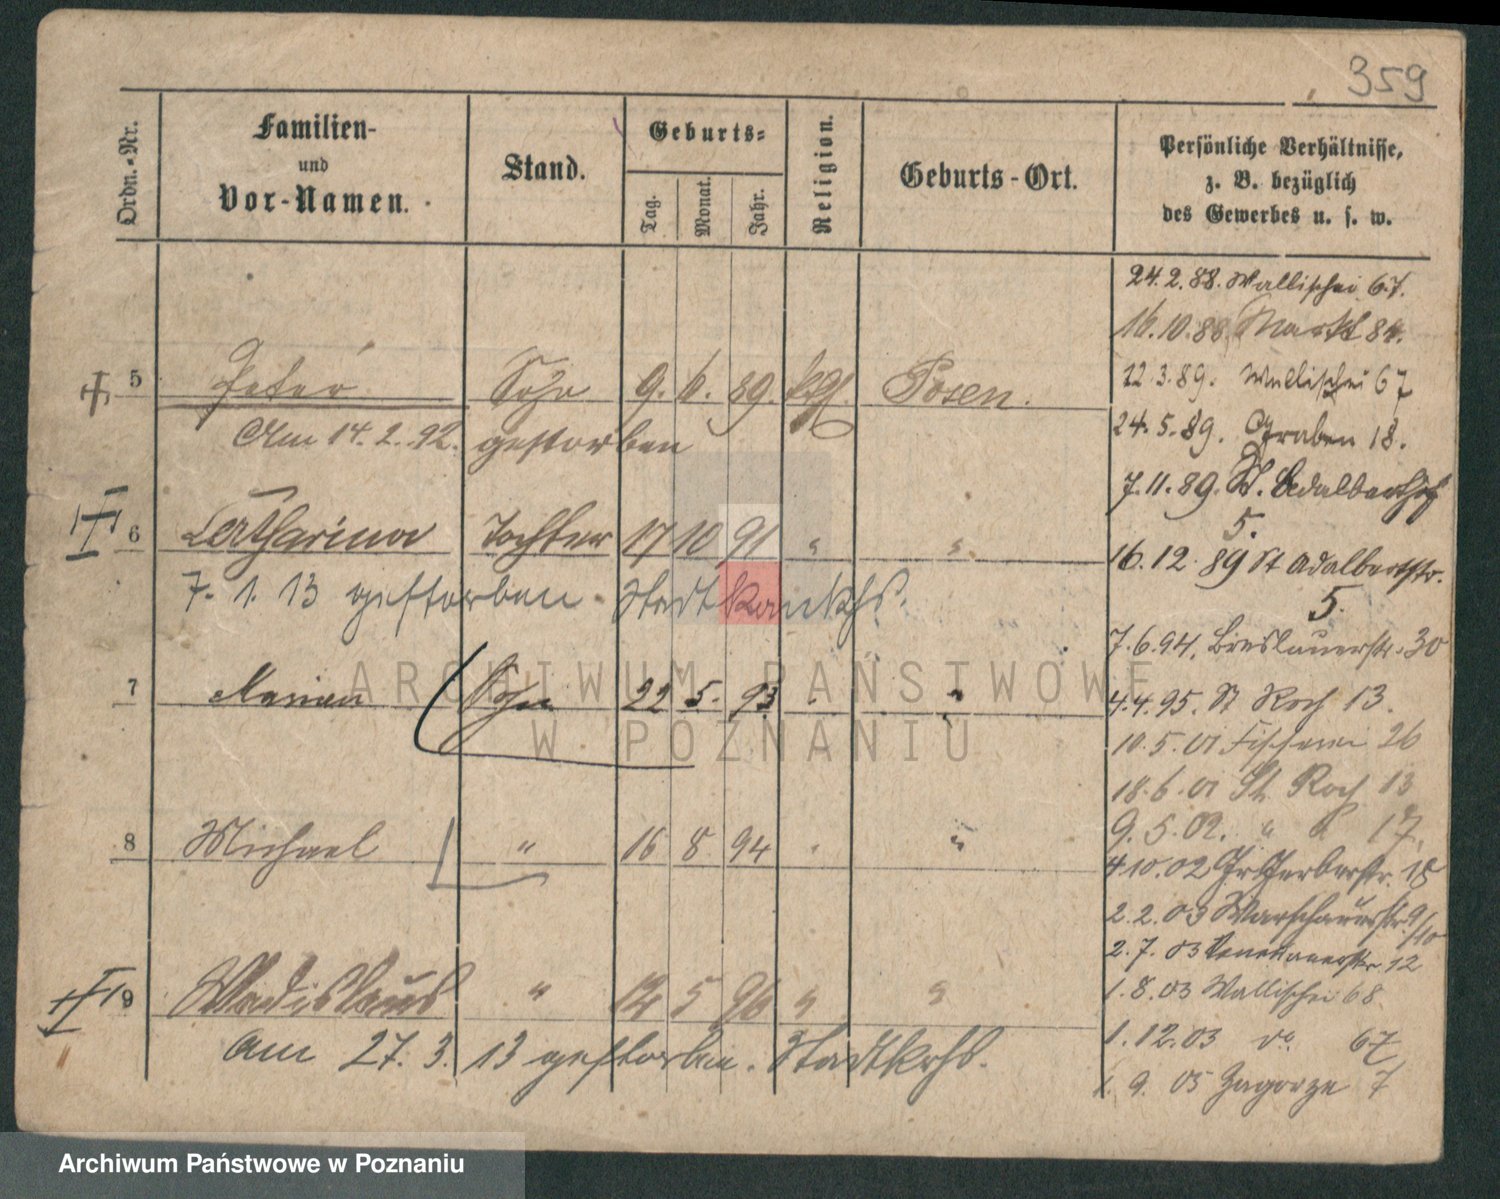 359
Ordn.-Nr.
Familien-
und
Vor-Namen.
Stand.
Geburts-
Tag.
Monat.
Jahr.
Religion.
Geburts-Ort.
Persönliche Verhältnisse,
z. B. bezüglich
des Gewerbes u. s. w.
24.2.88. Wallischei 67.
16.10.88. Markt 84.
5 Peter Sohn 9. 89. kth. Posen.
12.3.89. Wallischei 67
Am 14.2.92. gestorben
24.5.89. Graben 18.
7.11.89. St. Adalberthof
5.
6 Catharina Tochter 17 10 91 " "
16.12.89 St Adalbertstr.
5.
7.1.13 gestorben. Stadtkrankhs.
7.6.94. Breslauerstr. 30
7 Marian Sohn 22 5. 93. " "
4.4.95. St Roch 13.
10.5.01 Fischerei 26
18.6.01 St. Roch 13
9.5.02. " " 17.
8 Michael " 16 8 94 " "
4 10.02 Gr Gerberstr. 18
2.2.03 Warschauerstr 9/10
2.7.03 12
9 Wladislaus " 14 5 96 " "
1.8.03 Wallischei 68.
Am 27.3.13 gestorben. Stadtkrhs.
1.12.03 do. 67
1.9.05 Zagorze 7
ARCHIWUM PAŃSTWOWE
W POZNANIU
Archiwum Państwowe w Poznaniu